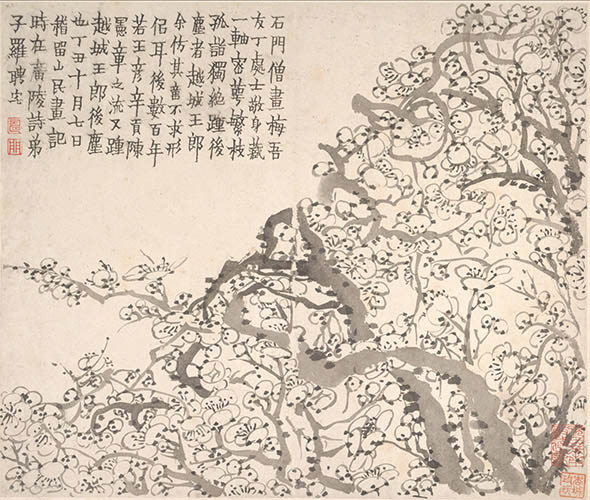 石門僧畫梅吾
友丁處士敬身藏
一軸密萼繁枝
孤詣獨絕踵後
塵者越城王郎
仿其舊不求形
佀耳後數百年
若王彥辛貢陳
憲章之流又踵
越城王郎後塵
也丁丑十月七日
稽留山民畫記
時在廣陵詩弟
子羅聘志